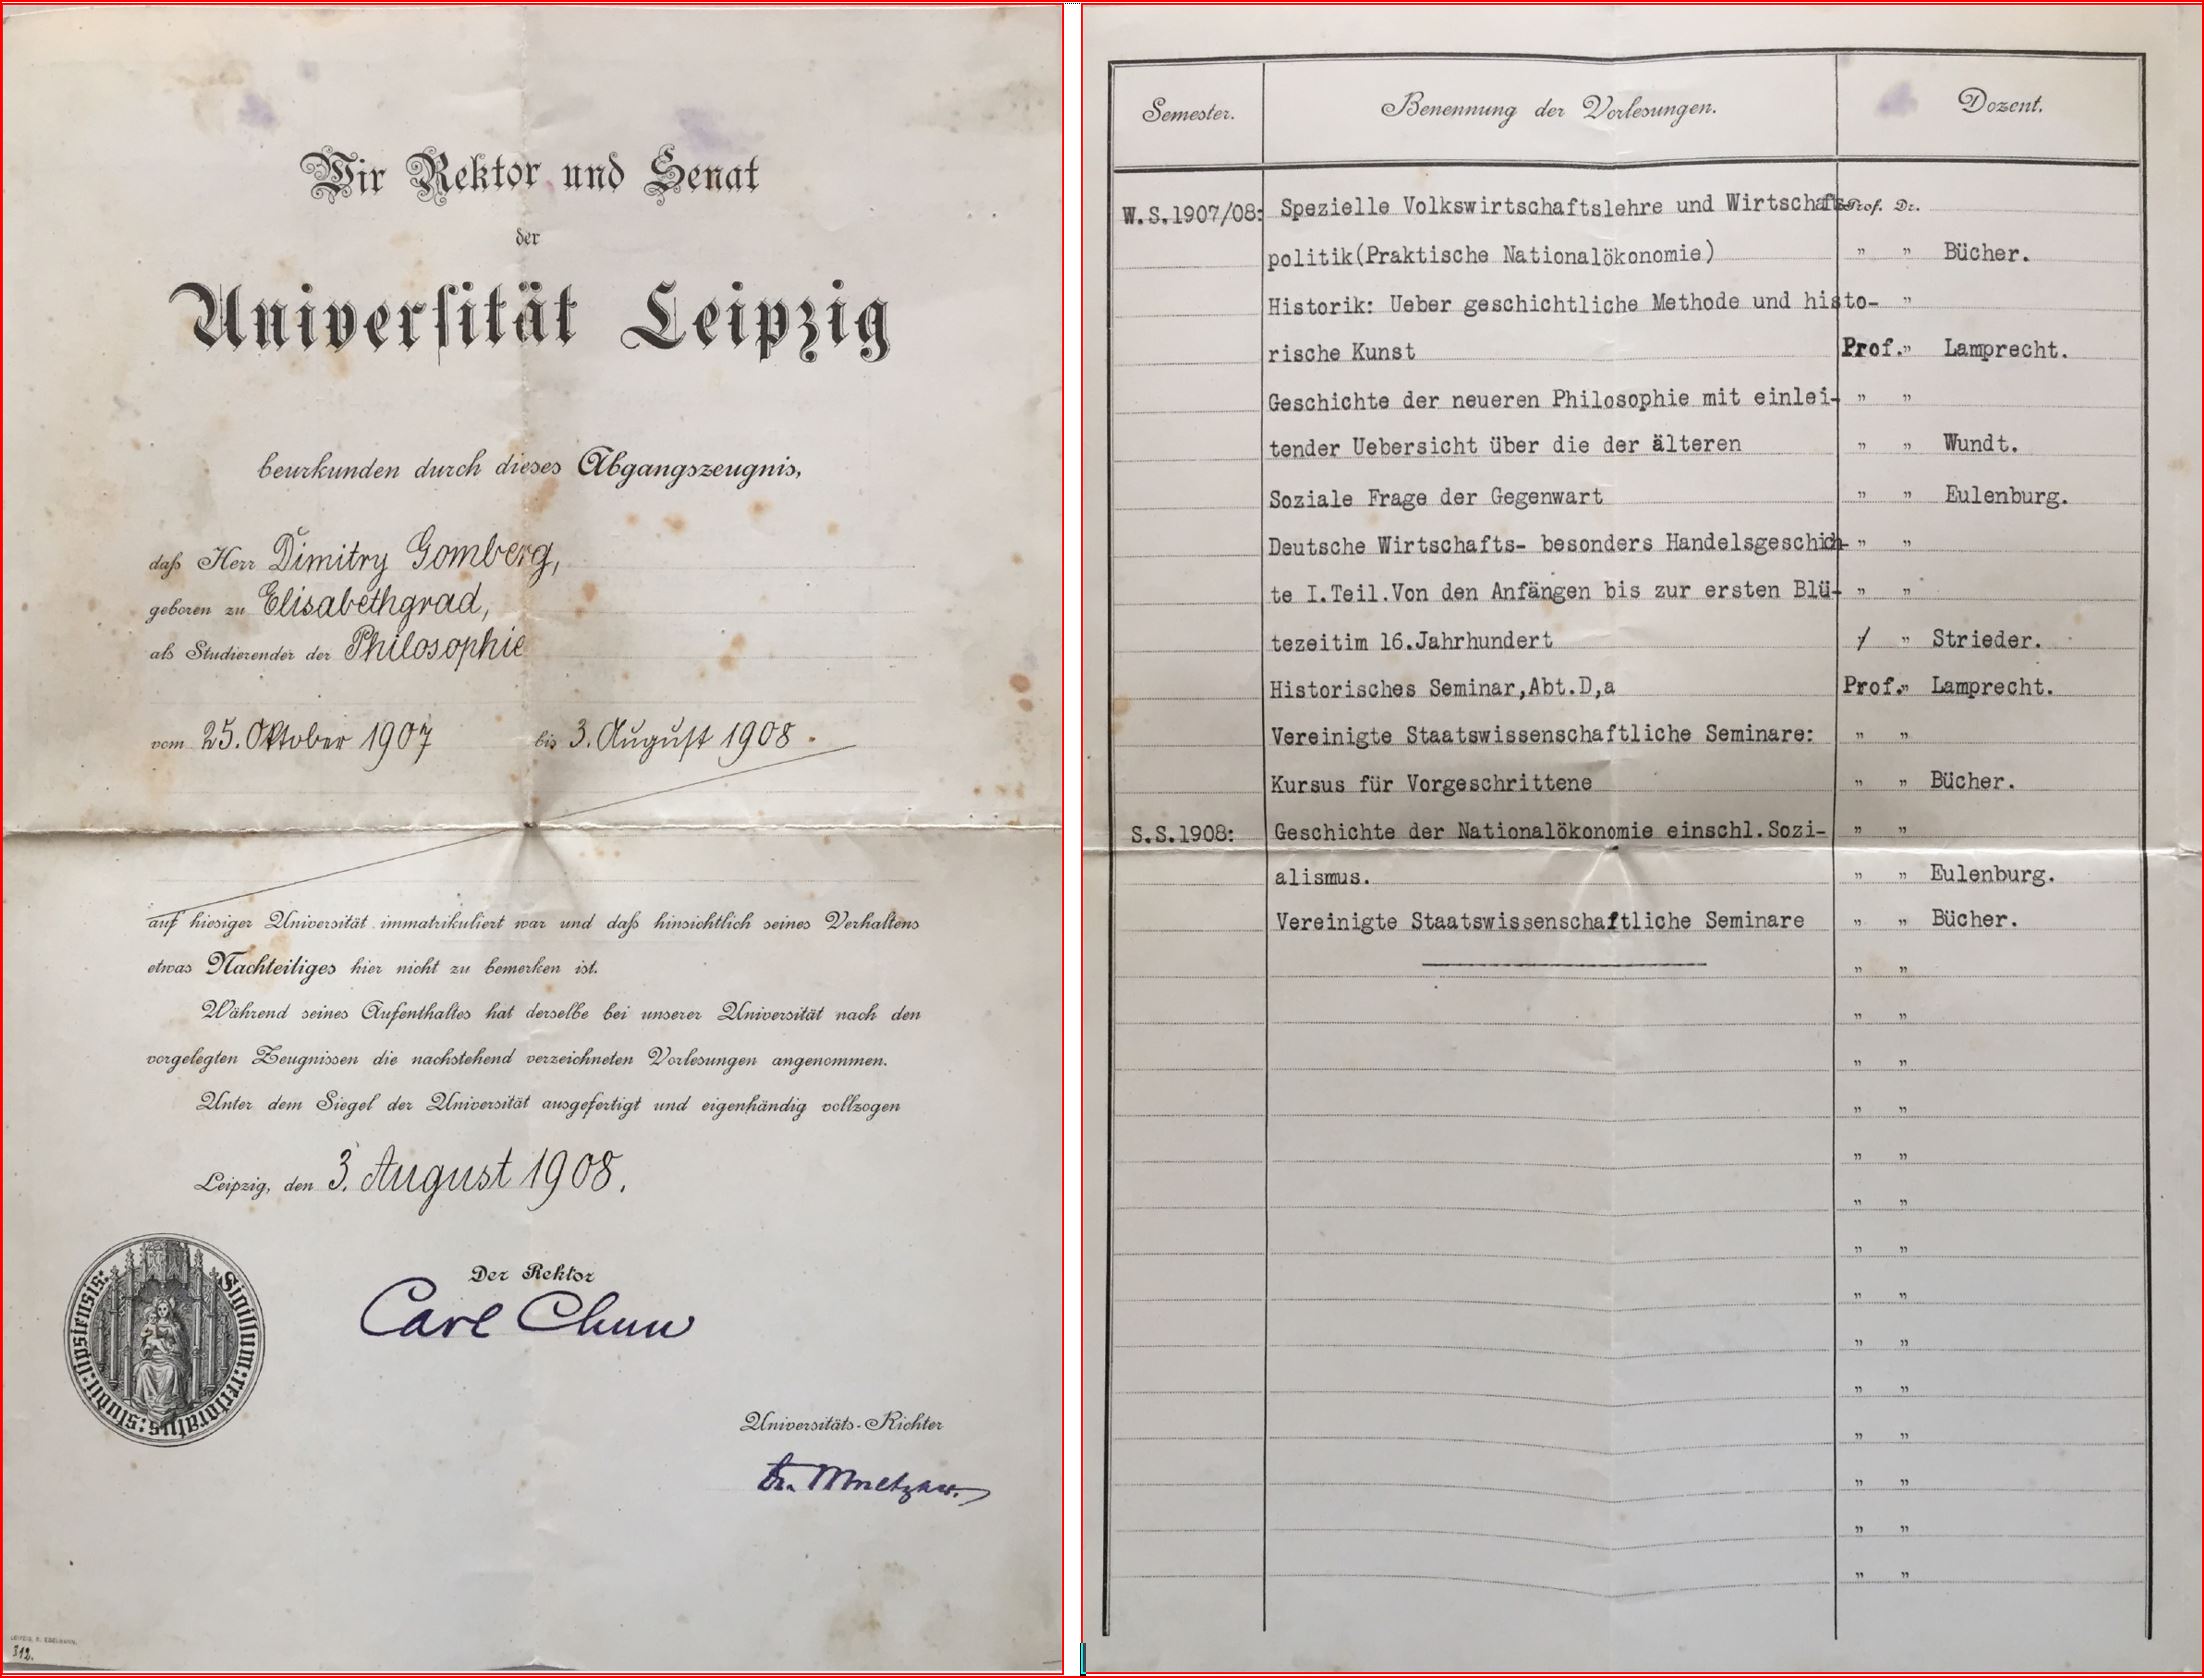 Wir Rektor und Senat
der
Universität Leipzig
beurkunden durch dieses Abgangszeugnis,
daß Herr Dimitry Gomberg,
geboren zu Elisabethgrad,
als Studierender der Philosophie
vom 25. Oktober 1907 bis 3. August 1908.
auf hiesiger Universität immatrikuliert war und daß hinsichtlich seines Verhaltens
etwas Nachteiliges hier nicht zu bemerken ist.
Während seines Aufenthaltes hat derselbe bei unserer Universität nach den
vorgelegten Zeugnissen die nachstehend verzeichneten Vorlesungen angenommen.
Unter dem Siegel der Universität ausgefertigt und eigenhändig vollzogen
Leipzig, den 3. August 1908.
Sigillum: rectoratus: studii: lipsiensis:
Der Rektor
Carl Chun
Universitäts-Richter
Dr.
LEIPZIG, E. EDELMANN.
312.
Semester. Benennung der Vorlesungen. Dozent.
W.S.1907/08: Spezielle Volkswirtschaftslehre und Wirtschafts- Prof. Dr.
politik(Praktische Nationalökonomie) " " Bücher.
Historik: Ueber geschichtliche Methode und histo- "
rische Kunst Prof. " Lamprecht.
Geschichte der neueren Philosophie mit einlei- " "
tender Uebersicht über die der älteren " " Wundt.
Soziale Frage der Gegenwart " " Eulenburg.
Deutsche Wirtschafts- besonders Handelsgeschich- " "
te I.Teil.Von den Anfängen bis zur ersten Blü- " "
tezeitim 16.Jahrhundert / " Strieder.
Historisches Seminar,Abt.D,a Prof. " Lamprecht.
Vereinigte Staatswissenschaftliche Seminare: " "
Kursus für Vorgeschrittene " " Bücher.
S.S.1908: Geschichte der Nationalökonomie einschl.Sozi- " "
alismus. " " Eulenburg.
Vereinigte Staatswissenschaftliche Seminare " " Bücher.
" "
" "
" "
" "
" "
" "
" "
" "
" "
" "
" "
" "
" "
" "